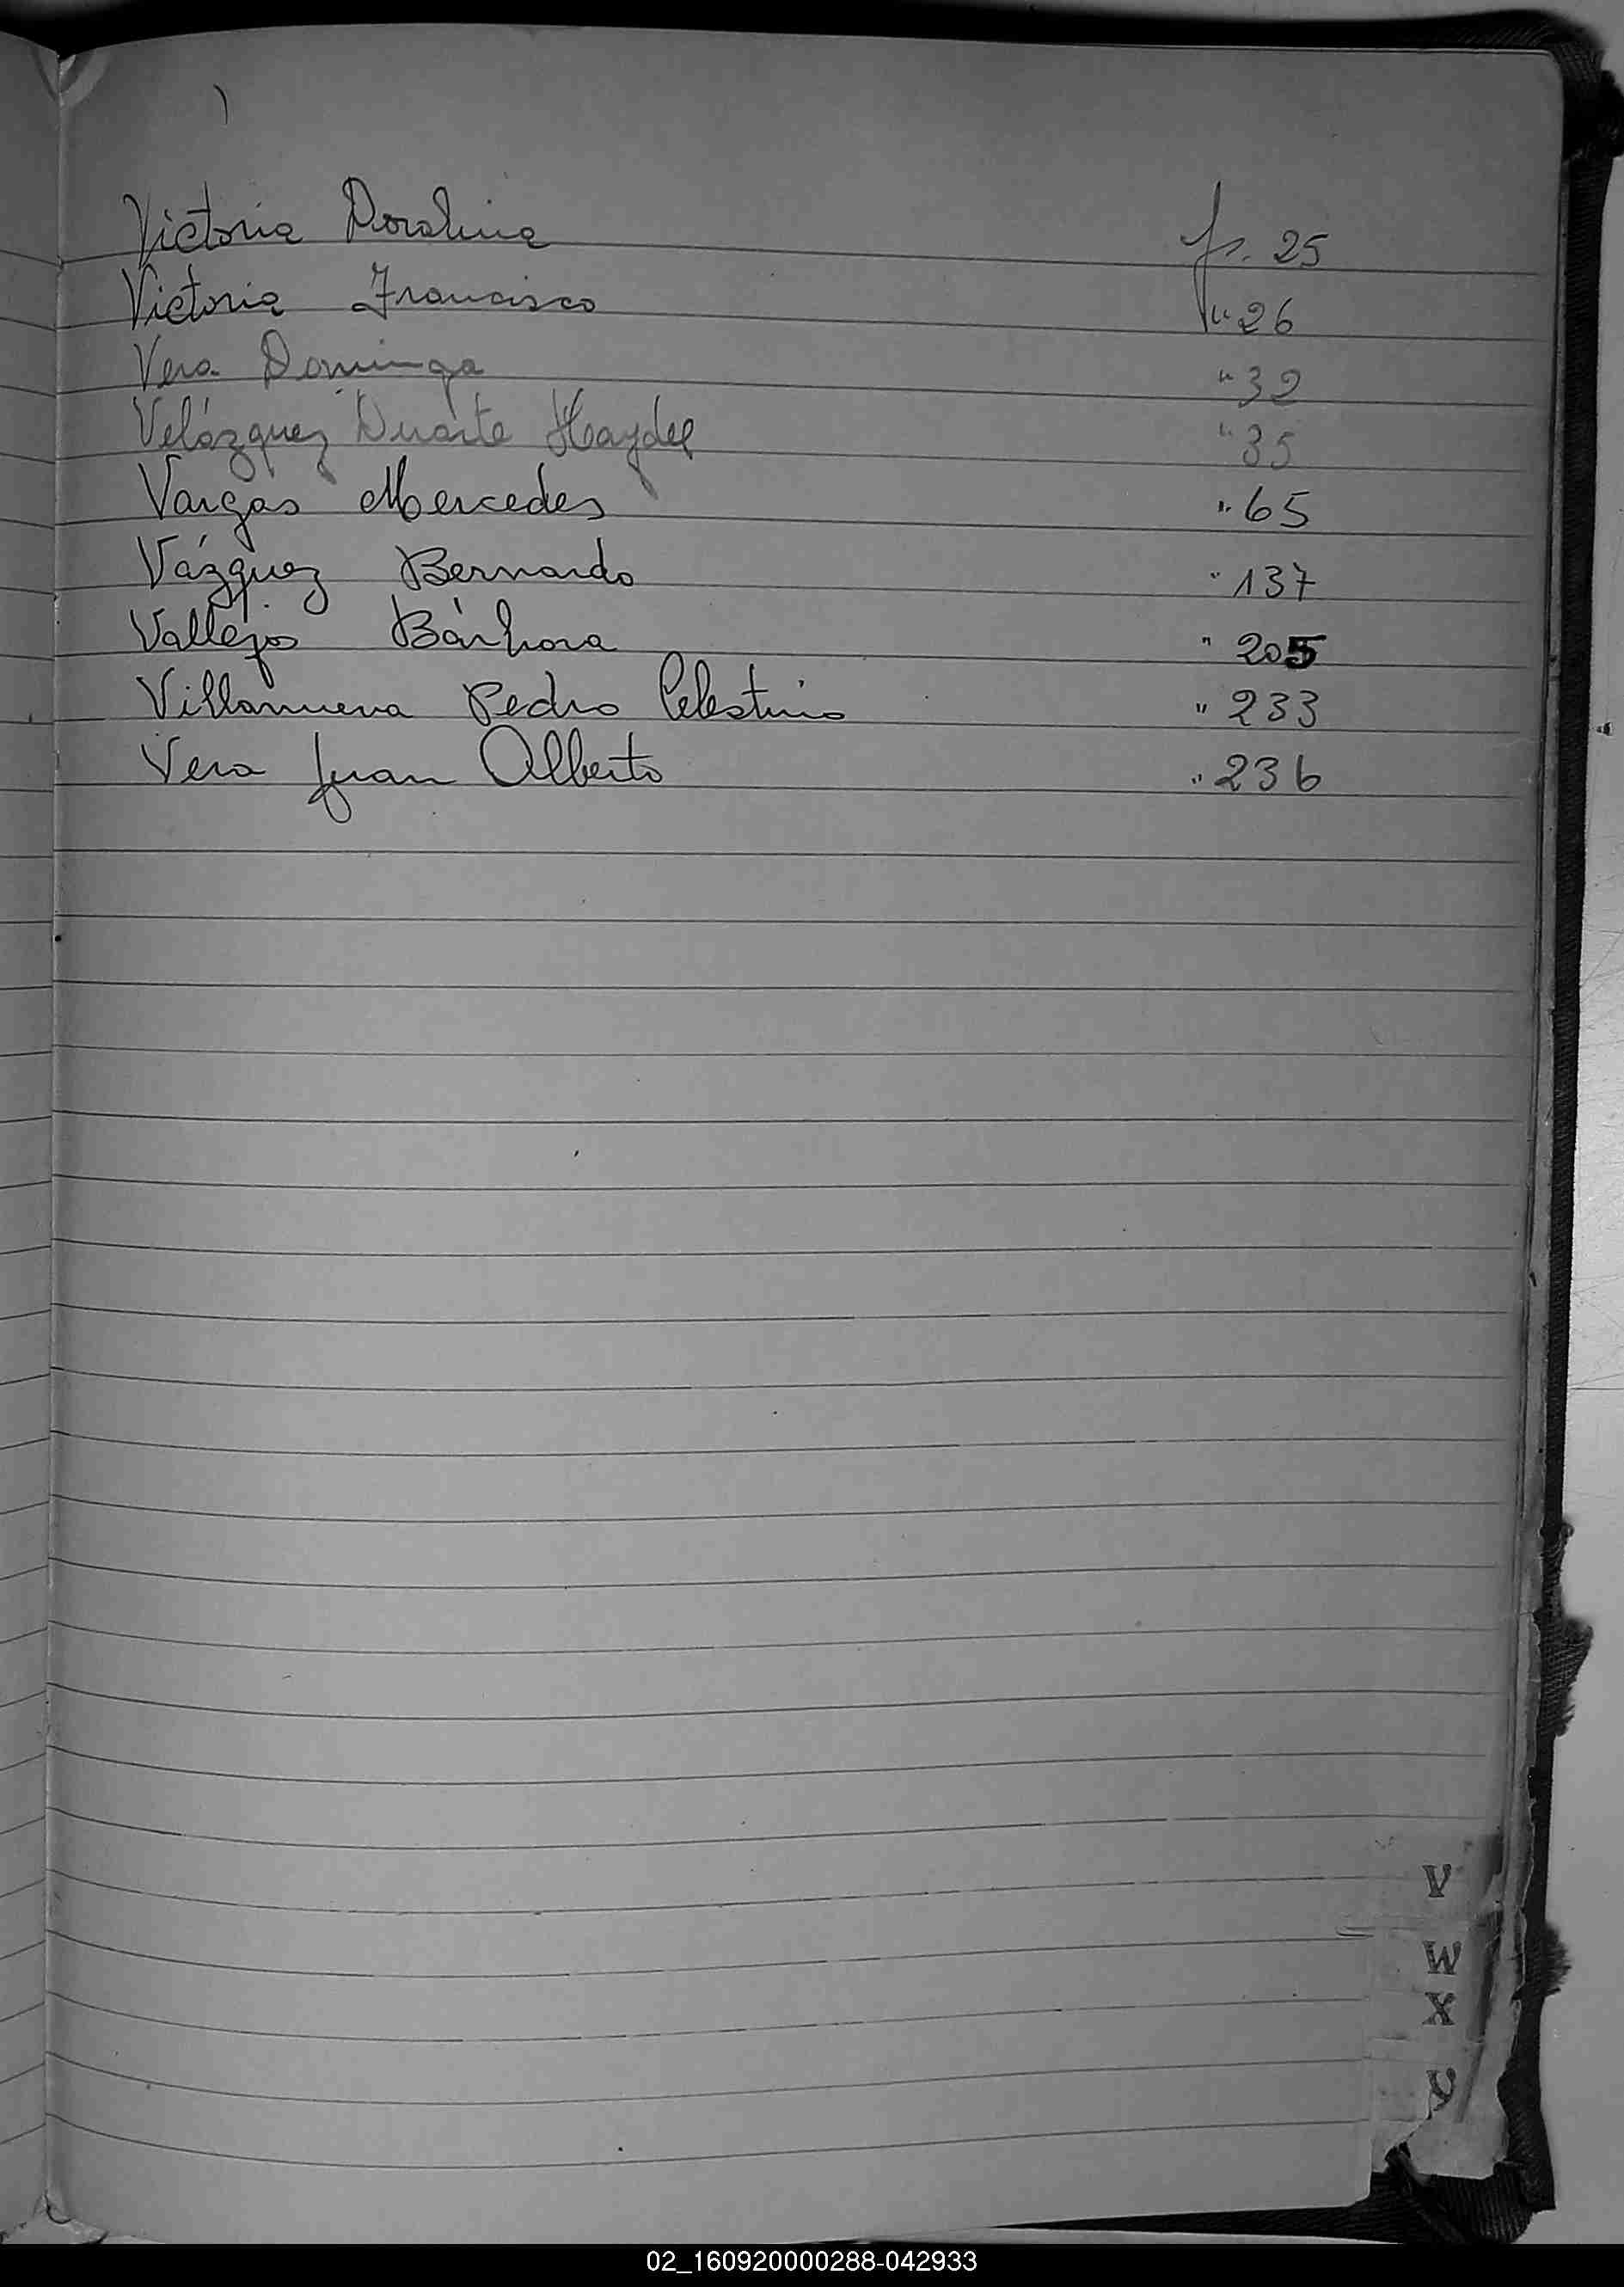 Victoria Doralina fs. 25
Victoria Francisco " 26
Vera Dominga " 32
Velázquez Duarte Haydeé " 35
Vargas Mercedes " 65
Vázquez Bernardo " 137
Vallejos Bárbara " 205
Villanueva Pedro Celestino " 233
Vera Juan Alberto " 236
V
W
X
Y
02_160920000288-042933